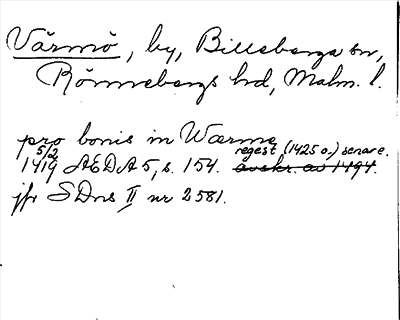 Värmö, by, Billeberga sn,
Rönnebergs hd, Malm. l.
pro bonis in Wærme
5/2 regest (1425 o.) senare.
1419 AEDA 5, s. 154. avskr. av 1494.
jfr SDns II nr 2581.